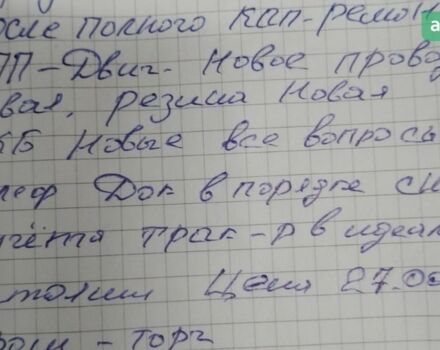 осле полного кап-ремон
ПП-Двиг- Новое провод
вая, резина Новая
КБ Новые все вопросы
леф Док в порядке сн
учёта трак-р в идеал
стоянии Цена 27.00
- торг